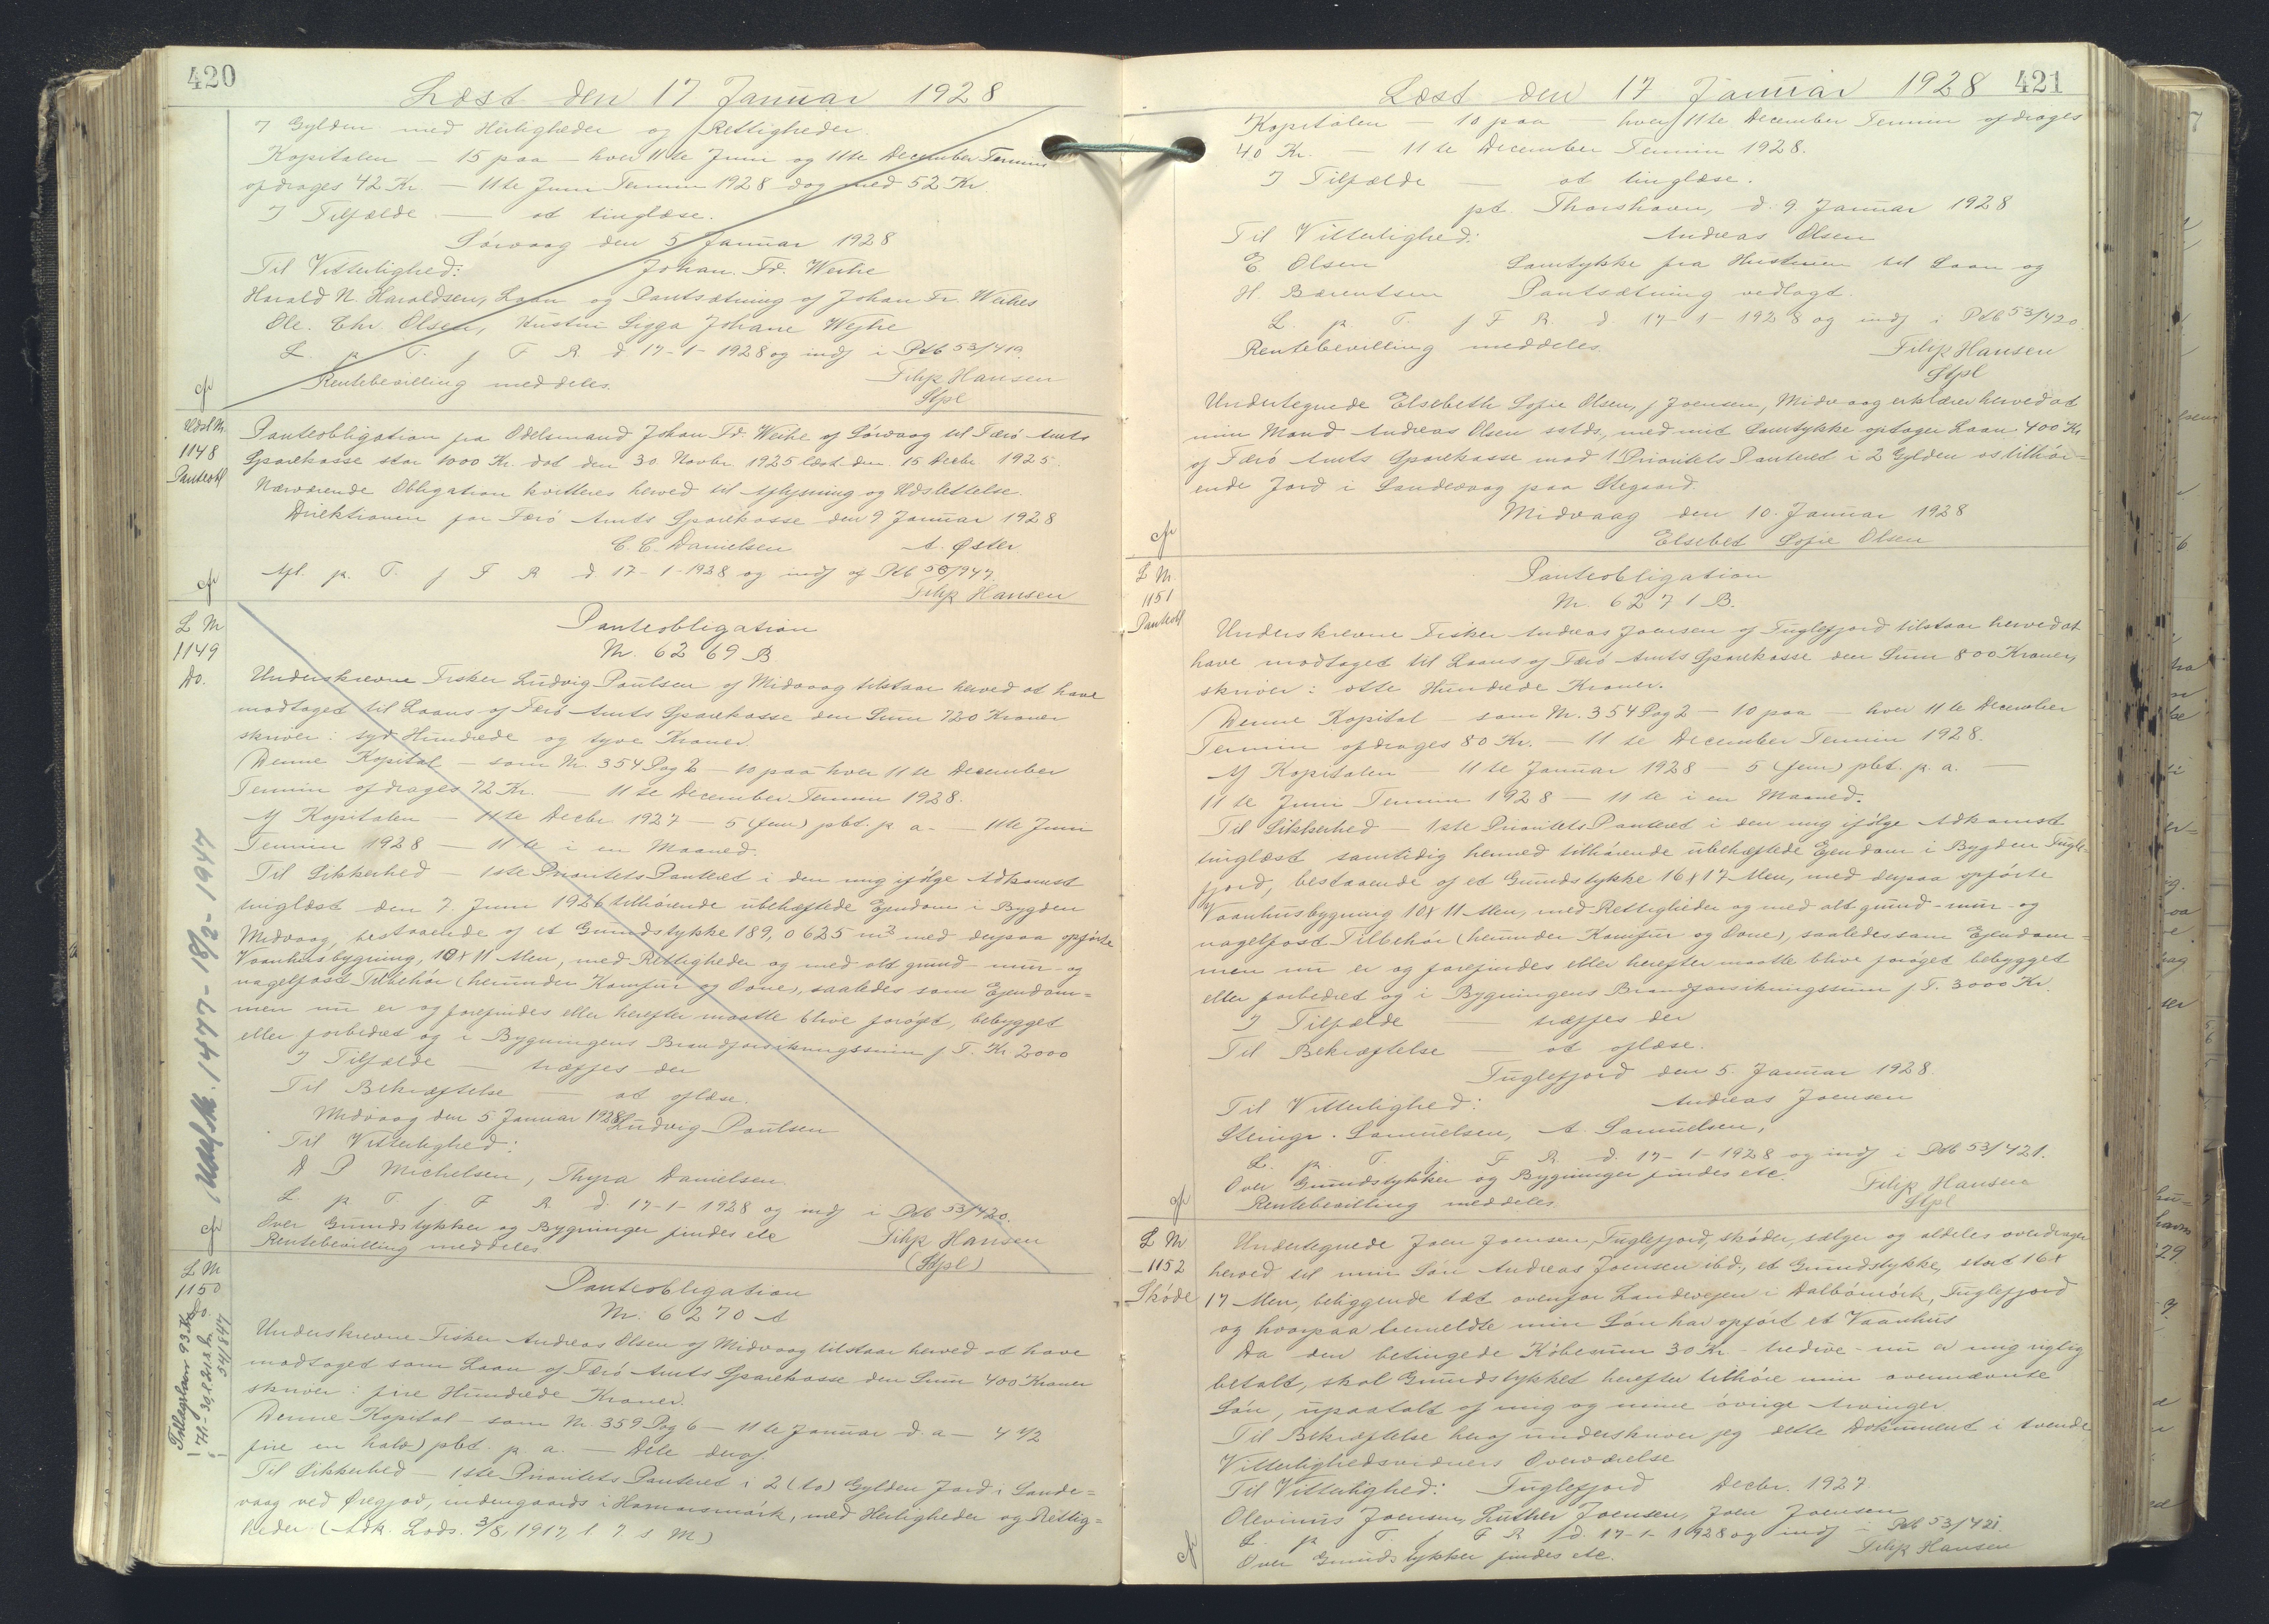 420
Læst den 17 Januar 1928
7 Gylden med Herligheder og Rettigheder.
Kapitalen — 15 paa — hver 11te Juni og 11te December Termin
afdrages 42 Kr. — 11te Juni Termin 1928 dog med 52 Kr.
I Tilfælde — at tinglæse.
Sörvaag den 5 Januar 1928
Til Vitterlighed: Johan. Fr. Weihe
Harald N. Haraldsen, Laan og Pantsætning af Johan Fr. Weihes
Ole. Chr. Olsen, Hustru Sigga Johane Wejhe
L p T. f F R d 17-1-1928 og indf i Ptb 53/419.
Rentebevilling meddeles. Filip Hansen
Stpl
cfr
Udsl Nr.
1148
Panteobl
Panteobligation fra Odelsmand Johan Fr. Weihe af Sörvaag til Færö Amts
Sparekasse stor 1000 Kr. dat den 30. Novbr. 1925 læst den 15 Decbr. 1925.
Nærværende Obligation kvitteres herved til Aflysning og Udslettelse.
Direktionen for Færö Amts Sparekasse den 9 Januar 1928
C. C. Danielsen A. Øster
Afl. p. T. f F R d 17-1-1928 og indf af Ptb 50/947.
Filip Hansen
cfr
L Nr
1149
Do.
Panteobligation
Nr. 6269 B
Underskrevne Fisker Ludvig Poulsen af Midvaag tilstaar herved at have
modtaget til Laans af Færö Amts Sparekasse den Sum 720 Kroner
skriver: syv Hundrede og tyve Kroner.
Denne Kapital — som Nr. 354 Pag 2 — 10 paa hver 11te December
Termin afdrages 72 Kr. — 11te December Termin 1928.
Af Kapitalen — 11te Decbr. 1927 — 5 (fem) pCt. p. a. — 11te Juni
Termin 1928 — 11te i en Maaned.
Til Sikkerhed — 1ste Prioritets Panteret i den mig ifölge Adkomst
tinglæst den 7. Juni 1926 tilhörende ubehæftede Ejendom i Bygden
Midvaag, bestaaende af et Grundstykke 189,0625 m² med derpaa opförte
Vaanhusbygning, 10 x 11 Alen, med Rettigheder og med alt grund- mur- og
nagelfast Tilbehör (herunder Komfur og Ovne), saaledes som Ejendom=
men nu er og forefindes eller herefter maatte blive foröget, bebygget
eller forbedret og i Bygningens Brandforsikringssum f. T. Kr. 2000
I Tilfælde — træffes der
Til Bekræftelse — at aflæse.
Midvaag den 5 Januar 1928 Ludvig Poulsen
Til Vitterlighed:
D P Michelsen, Thyra Danielsen
L p T f F R d. 17-1-1928 og indf i Ptb 53/420.
Over Grundstykker og Bygninger findes etc Filip Hansen
Rentebevilling meddeles (Stpl)
Udsl. Nr. 1477 - 18/2 - 1947
cfr
L Nr
1150
Do.
Panteobligation
Nr. 6270 A
Underskrevne Fisker Andreas Olsen af Midvaag tilstaar herved at have
modtaget som Laan af Færö Amts Sparekasse den Sum 400 Kroner
skriver: fire Hundrede Kroner.
Denne Kapital — som Nr. 359 Pag 6 — 11te Januar d. a — 4 1/2
fire en halv) pCt. p. a. — Dele deraf.
Til Sikkerhed — 1ste Prioritets Panteret i 2 (to) Gylden Jord i Sande=
vaag ved Øregjov, indengaards i Hamarsmörk, med Herligheder og Rettig=
heder (Adk. Lods. 3/8, 1917, l. 7. s M)
421
Læst den 17 Januar 1928
Kapitalen — 10 paa — hver 11te December Termin afdrages
40 Kr. — 11te December Termin 1928.
I Tilfælde — at tinglæse.
pt. Thorshavn, d. 9 Januar 1928
Til Vitterlighed: Andreas Olsen
E. Olsen Samtykke fra Hustruen til Laan og
H. Bærentsen Pantsætning vedlagt.
L. p. T. f F R. d. 17-1-1928 og indf i Ptb 53/420.
Rentebevilling meddeles. Filip Hansen
Stpl
Undertegnede Elsebeth Sofie Olsen, f Joensen, Midvaag erklærer herved at
min Mand Andreas Olsen satds., med mit Samtykke optager Laan 400 Kr
af Færö Amts Sparekasse mod 1 Prioritets Panteret i 2 Gylden os tilhör=
ende Jord i Sandevaag paa Stegaard.
Midvaag den 10. Januar 1928
Elsebet Sofie Olsen
cfr
L Nr.
1151
Panteobl
Panteobligation
Nr. 6271 B.
Underskrevne Fisker Andreas Joensen af Fuglefjord tilstaar herved at
have modtaget til Laans af Færö Amts Sparekasse den Sum 800 Kroner,
skriver: otte Hundrede Kroner.
Denne Kapital — som Nr. 354 Pag 2 — 10 paa — hver 11te December
Termin afdrages 80 Kr. — 11te December Termin 1928.
Af Kapitalen — 11te Januar 1928 — 5 (fem) pCt. p. a. —
11te Juni Termin 1928 — 11te i en Maaned.
Til Sikkerhed — 1ste Prioritets Panteret i den mig ifölge Adkomst
tinglæst samtidig hermed tilhörende ubehæftede Ejendom i Bygden Fugle=
fjord, bestaaende af et Grundstykke 16 x 17 Alen, med derpaa opförte
Vaanhusbygning 10 x 11 Alen, med Rettigheder og med alt grund- mur- og
nagelfast Tilbehör (herunder Komfur og Ovne), saaledes som Ejendom=
men nu er og forefindes eller herefter maatte blive foröget bebygget
eller forbedret og i Bygningens Brandforsikringssum f. T. 3000 Kr.
I Tilfælde — træffes der
Til Bekræftelse — at aflæse.
Fuglefjord den 5. Januar 1928.
Til Vitterlighed: Andreas Joensen
Steingr. Samuelsen, A. Samuelsen,
L. p. T. f. F R. d. 17-1-1928 og indf i Ptb 53/421.
Over Grundstykker og Bygninger findes etc. Filip Hansen
Rentebevilling meddeles Stpl
cfr
L Nr
1152
Sköde
Undertegnede Joen Joensen, Fuglefjord, sköder, sælger og aldeles overdrager
herved til min Sön Andreas Joensen ibd., et Grundstykke, stort 16 x
17 Alen, beliggende tæt ovenfor Landevejen i Dalbömörk, Fuglefjord
og hvorpaa bemeldte min Sön har opfört et Vaanhus
Da den betingede Köbesum 30 Kr - tredive - nu er mig rigtig
betalt, skal Grundstykket herefter tilhöre min ovennævnte
Sön, upaatalt af mig og mine övrige Arvinger
Til Bekræftelse heraf underskriver jeg dette Dokument i tvende
Vitterlighedsvidners Overværelse
Til Vitterlighed: Fuglefjord Decbr. 1927
Olevinus Joensen, Luther Joensen, Joen Joensen
L. p. T. f F R d. 17-1-1928 og indf i Ptb 53/421.
Over Grundstykker findes etc. Filip Hansen
cfr